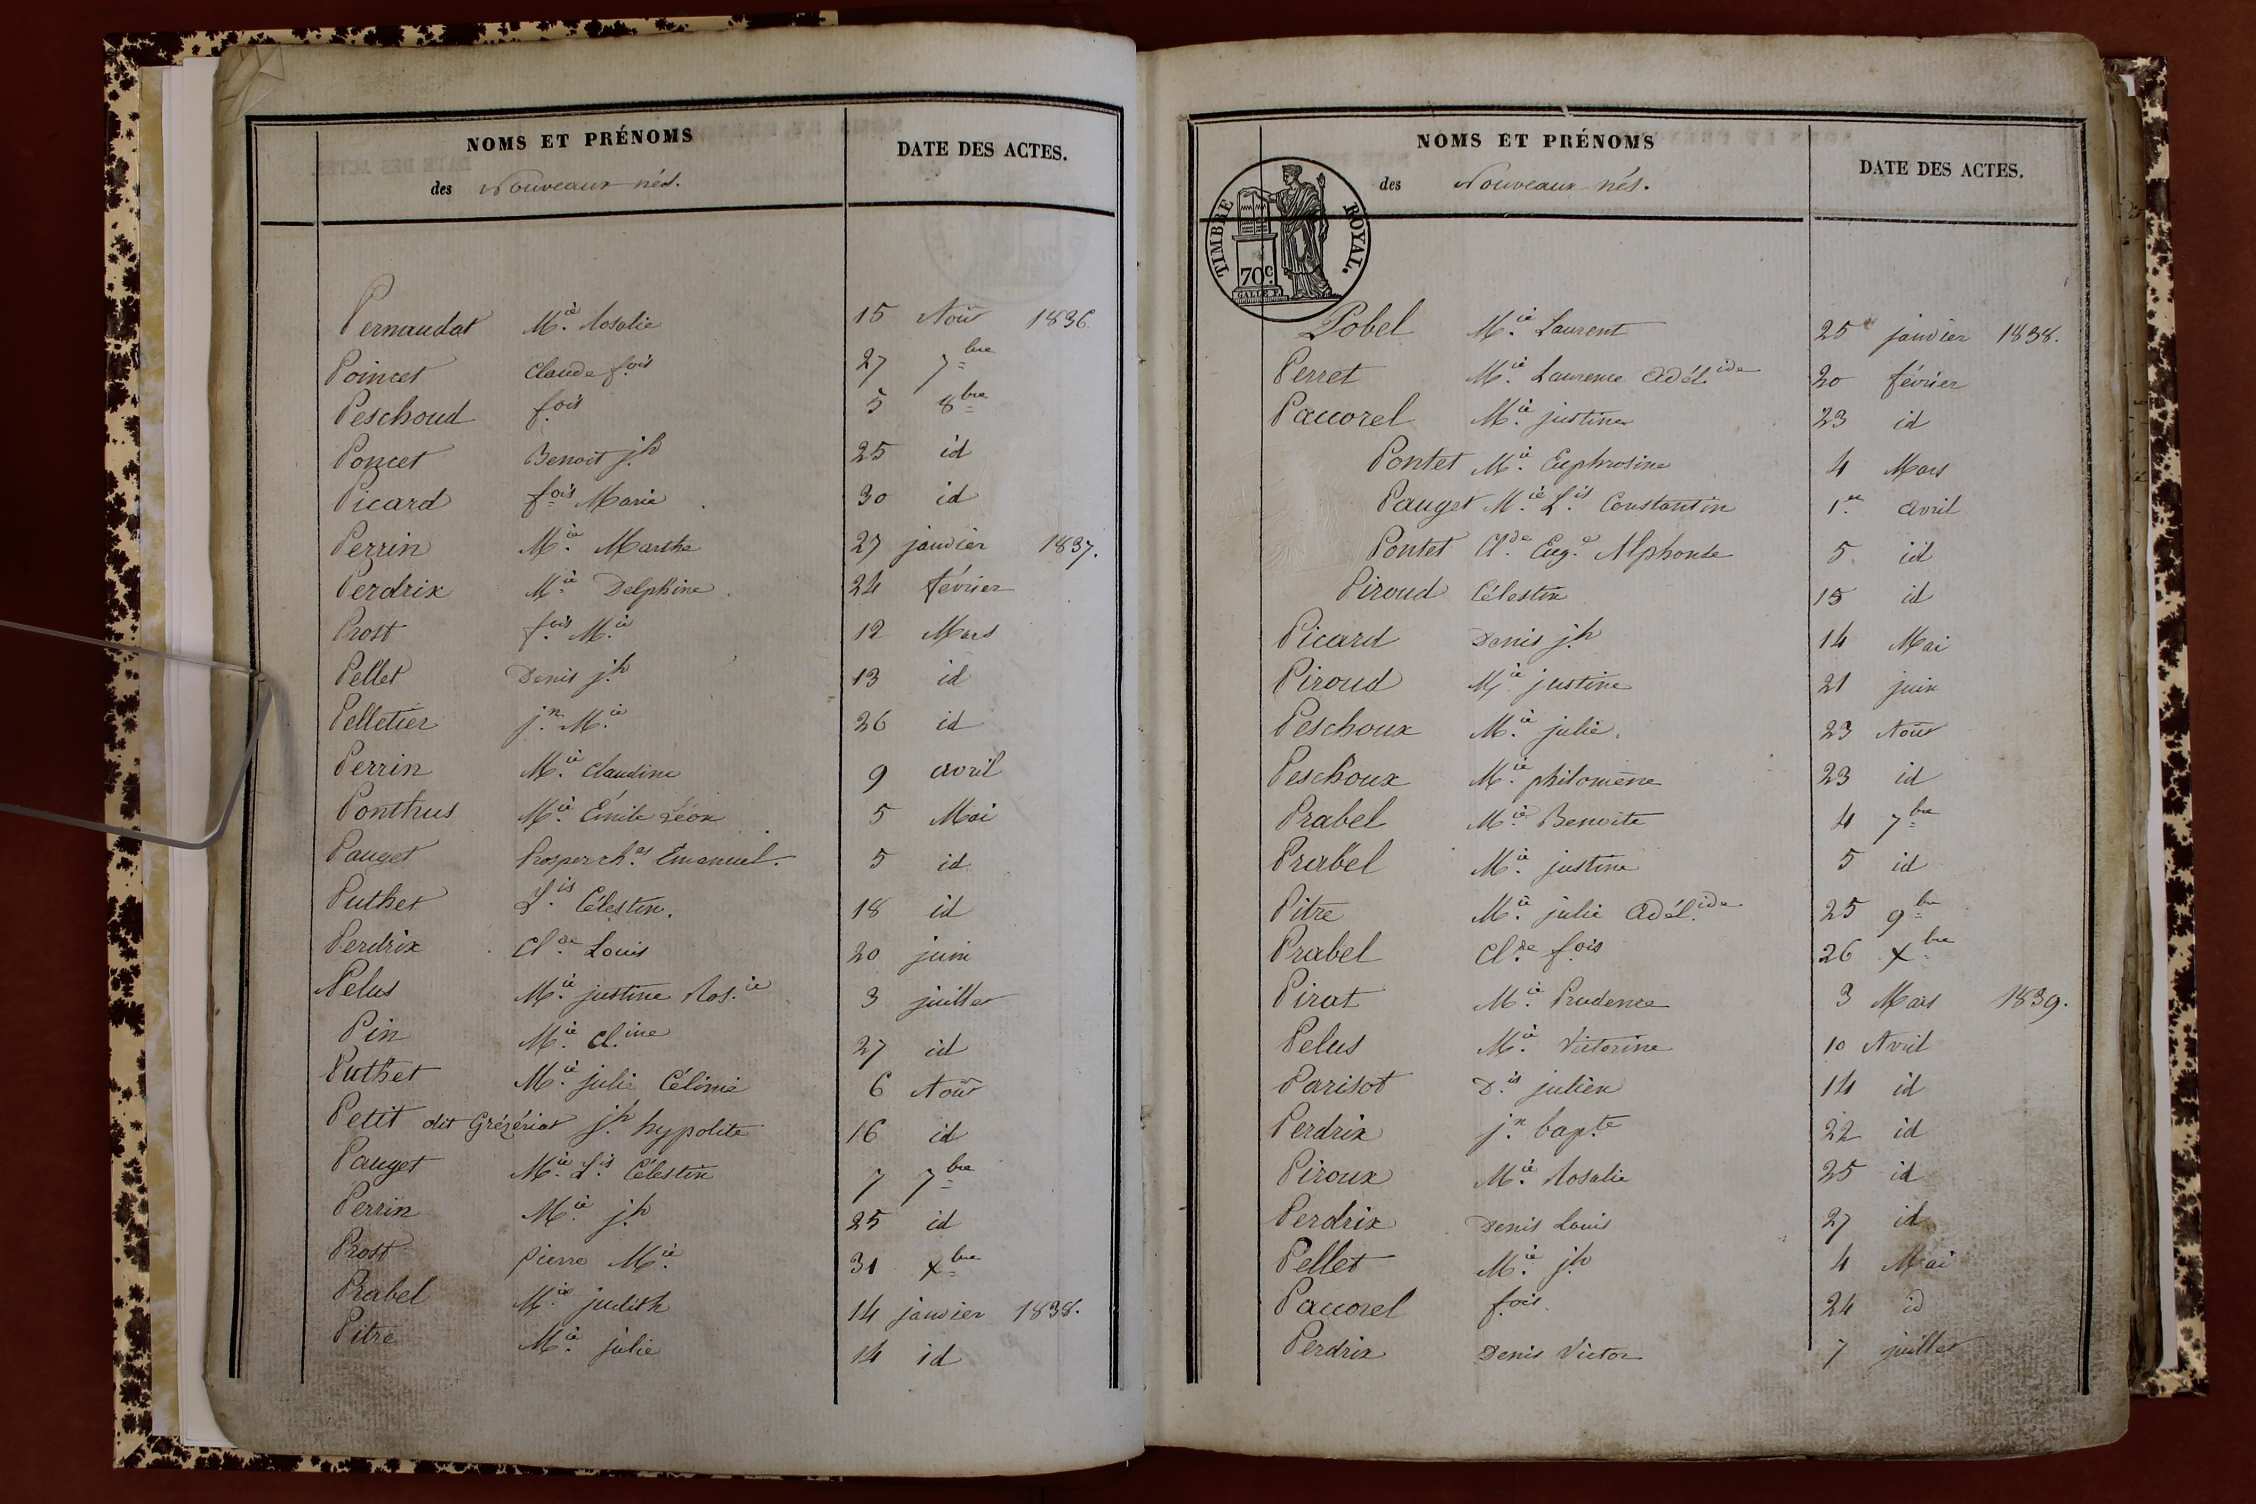 NOMS ET PRÉNOMS
des Nouveaux nés.
DATE DES ACTES.
Pernaudat M.ie Rosalie 15 Août 1836.
Poincet Claude f.ois 27 7bre
Peschoud f.ois 5 8bre
Poncet Benoit j.h 25 id
Picard f.ois Marie 30 id
Perrin M.ie Marthe 27 janvier 1837.
Perdrix M.ie Delphine 24 février
Prost f.ois M.ie 12 Mars
Pellet Denis j.h 13 id
Pelletier j.n M.ie 26 id
Perrin M.ie Claudine 9 avril
Ponthus M.ie Émile Léon 5 Mai
Pauget Prosper ch.es Emanuel. 5 id
Puthet L.is Célestin. 18 id
Perdrix Cl.de Louis 20 juin
Pelus M.ie justine Ros.ie 3 juillet
Pin M.ie Cl.ine 27 id
Puthet M.ie julie Célinie 6 Août
Petit dit Grézériat j.h hypolite 16 id
Pauget M.ie L.is Célestin 7 7bre
Perrin M.ie j.h 25 id
Prost pierre M.ie 31 xbre
Prabel M.ie judith 14 janvier 1838.
Pitre M.ie julie 14 id
NOMS ET PRÉNOMS
des Nouveaux nés.
DATE DES ACTES.
TIMBRE ROYAL.
70c
Pobel M.ie Laurent 25 janvier 1838.
Perret M.ie Laurence Adél.ide 20 février
Paccorel M.ie justine 23 id
Pontet M.ie Euphrosine 4 Mars
Pauget M.ie L.is Constantin 1.er avril
Pontet Cl.de Eug.e Alphonse 5 id
Piroud Célestin 15 id
Picard Denis j.h 14 Mai
Piroud M.ie justine 21 juin
Peschoux M.ie julie. 23 Août
Peschoux M.ie philomène 23 id
Prabel M.ie Benoite 4 7bre
Prabel M.ie justine 5 id
Pitre M.ie julie Adél.ide 25 9bre
Prabel Cl.de f.ois 26 xbre
Pirat M.ie Prudence 3 Mars 1839.
Pelus M.ie Victorine 10 Avril
Parisot D.is julien 14 id
Perdrix j.n bap.te 22 id
Piroux M.ie Rosalie 25 id
Perdrix Denis Louis 27 id
Pellet M.ie j.h 4 Mai
Paccorel f.ois 24 id
Perdrix Denis Victor 7 juillet